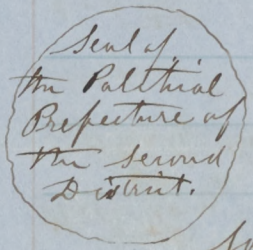 Seal of
the Politial
Prefecture of
the Second
District.